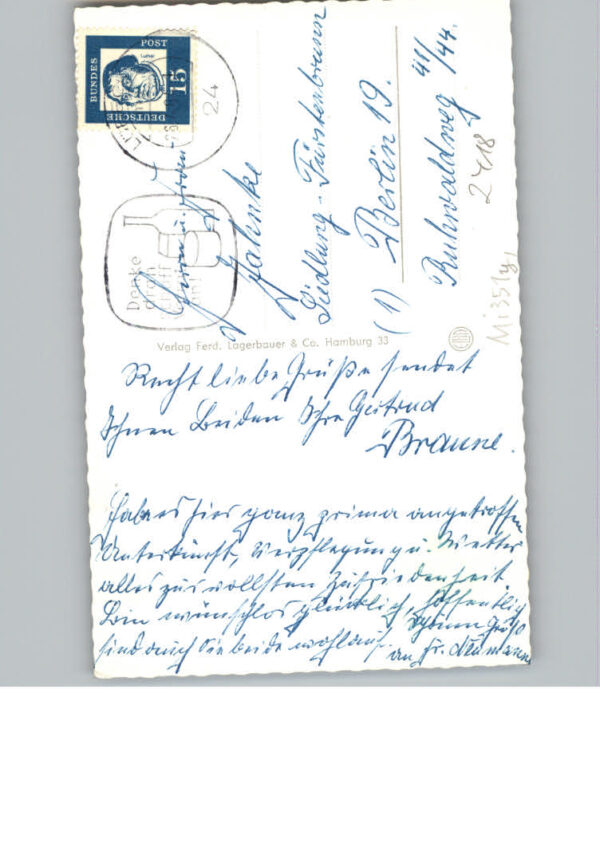 DEUTSCHE
BUNDES
POST
15
Luther
24
Denke
dran
Herrn u. Frau
Jahnke
Siedlung-Fürstenbrunn
(1) Berlin 19.
Ruhwaldweg 41/44.
2418
Mi 351y
Verlag Ferd. Lagerbauer & Co. Hamburg 33
Recht liebe Grüße sendet
Ihnen Beiden Ihre Gertrud
Braune.
Habe es hier ganz prima angetroffen
Unterkunft, Verpflegung u. Wetter
alles zur vollsten Zufriedenheit
Bin wunschlos glücklich, hoffentlich
sind auch Sie beide wohlauf.
Gruß
an Fr. Neumann